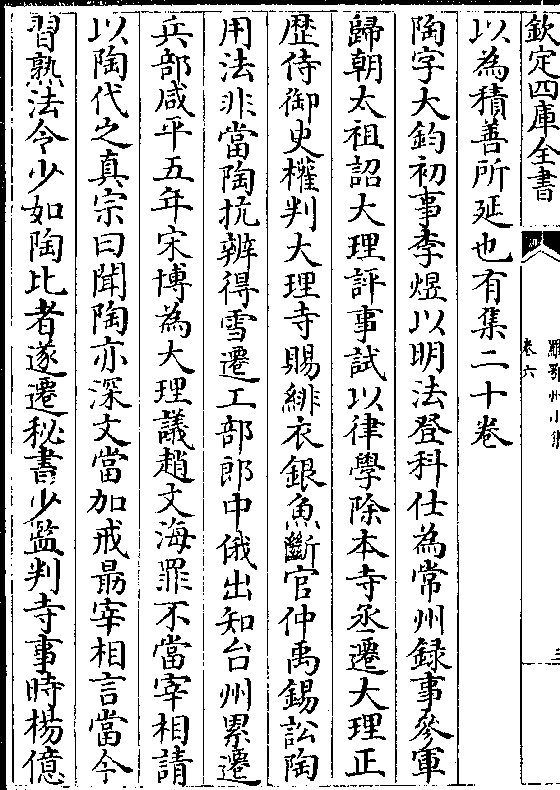 欽定四庫全書
卷六
以為積善所延也有集二十卷
陶字大鈞初事李煜以明法登科仕為常州録事參軍
歸朝太祖詔大理評事試以律學除本寺丞遷大理正
歴侍御史權判大理寺賜緋衣銀魚斷官仲禹錫訟陶
用法非當陶抗辨得雪遷工部郎中俄出知台州累遷
兵部咸平五年宋博為大理議趙文海罪不當宰相請
以陶代之真宗曰聞陶亦深文當加戒朂宰相言當今
習熟法令少如陶比者遂遷秘書少監判寺事時楊億